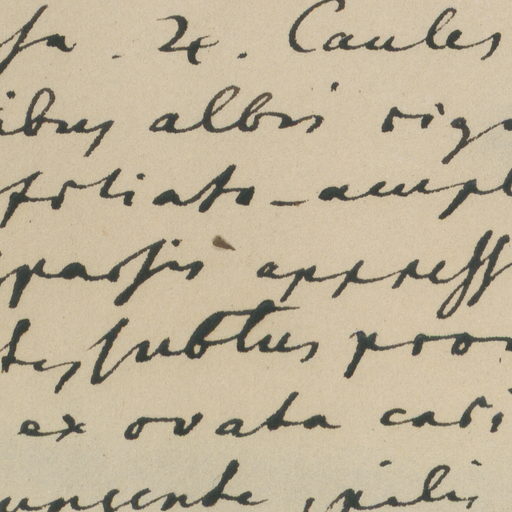 sa. ♃. Caules
ibus albis rig
foliato-ampl
sparsis appress
te, subtus pro
ex ovata cari
, pilis